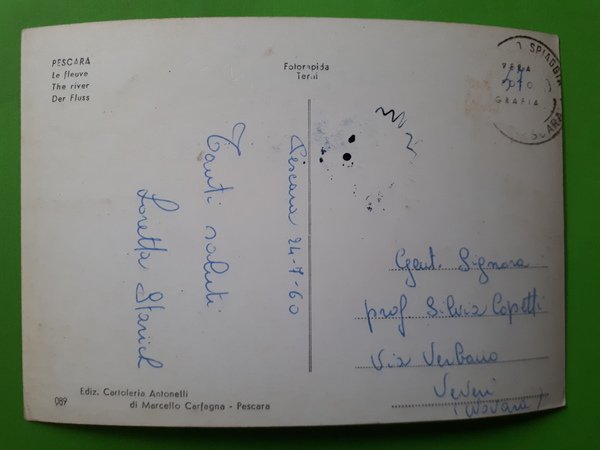 PESCARA
Le fleuve
The river
Der Fluss
Fotorapida
Terni
SPIAGGIA
VERA
FOTO
GRAFIA
Pescara 24-7-60
Tanti saluti
Loretta
Gent. Signora
prof. Silvia Copetti
Via Verbano
Veveri
(Novara)
089
Ediz. Cartoleria Antonelli
di Marcello Carfagna - Pescara